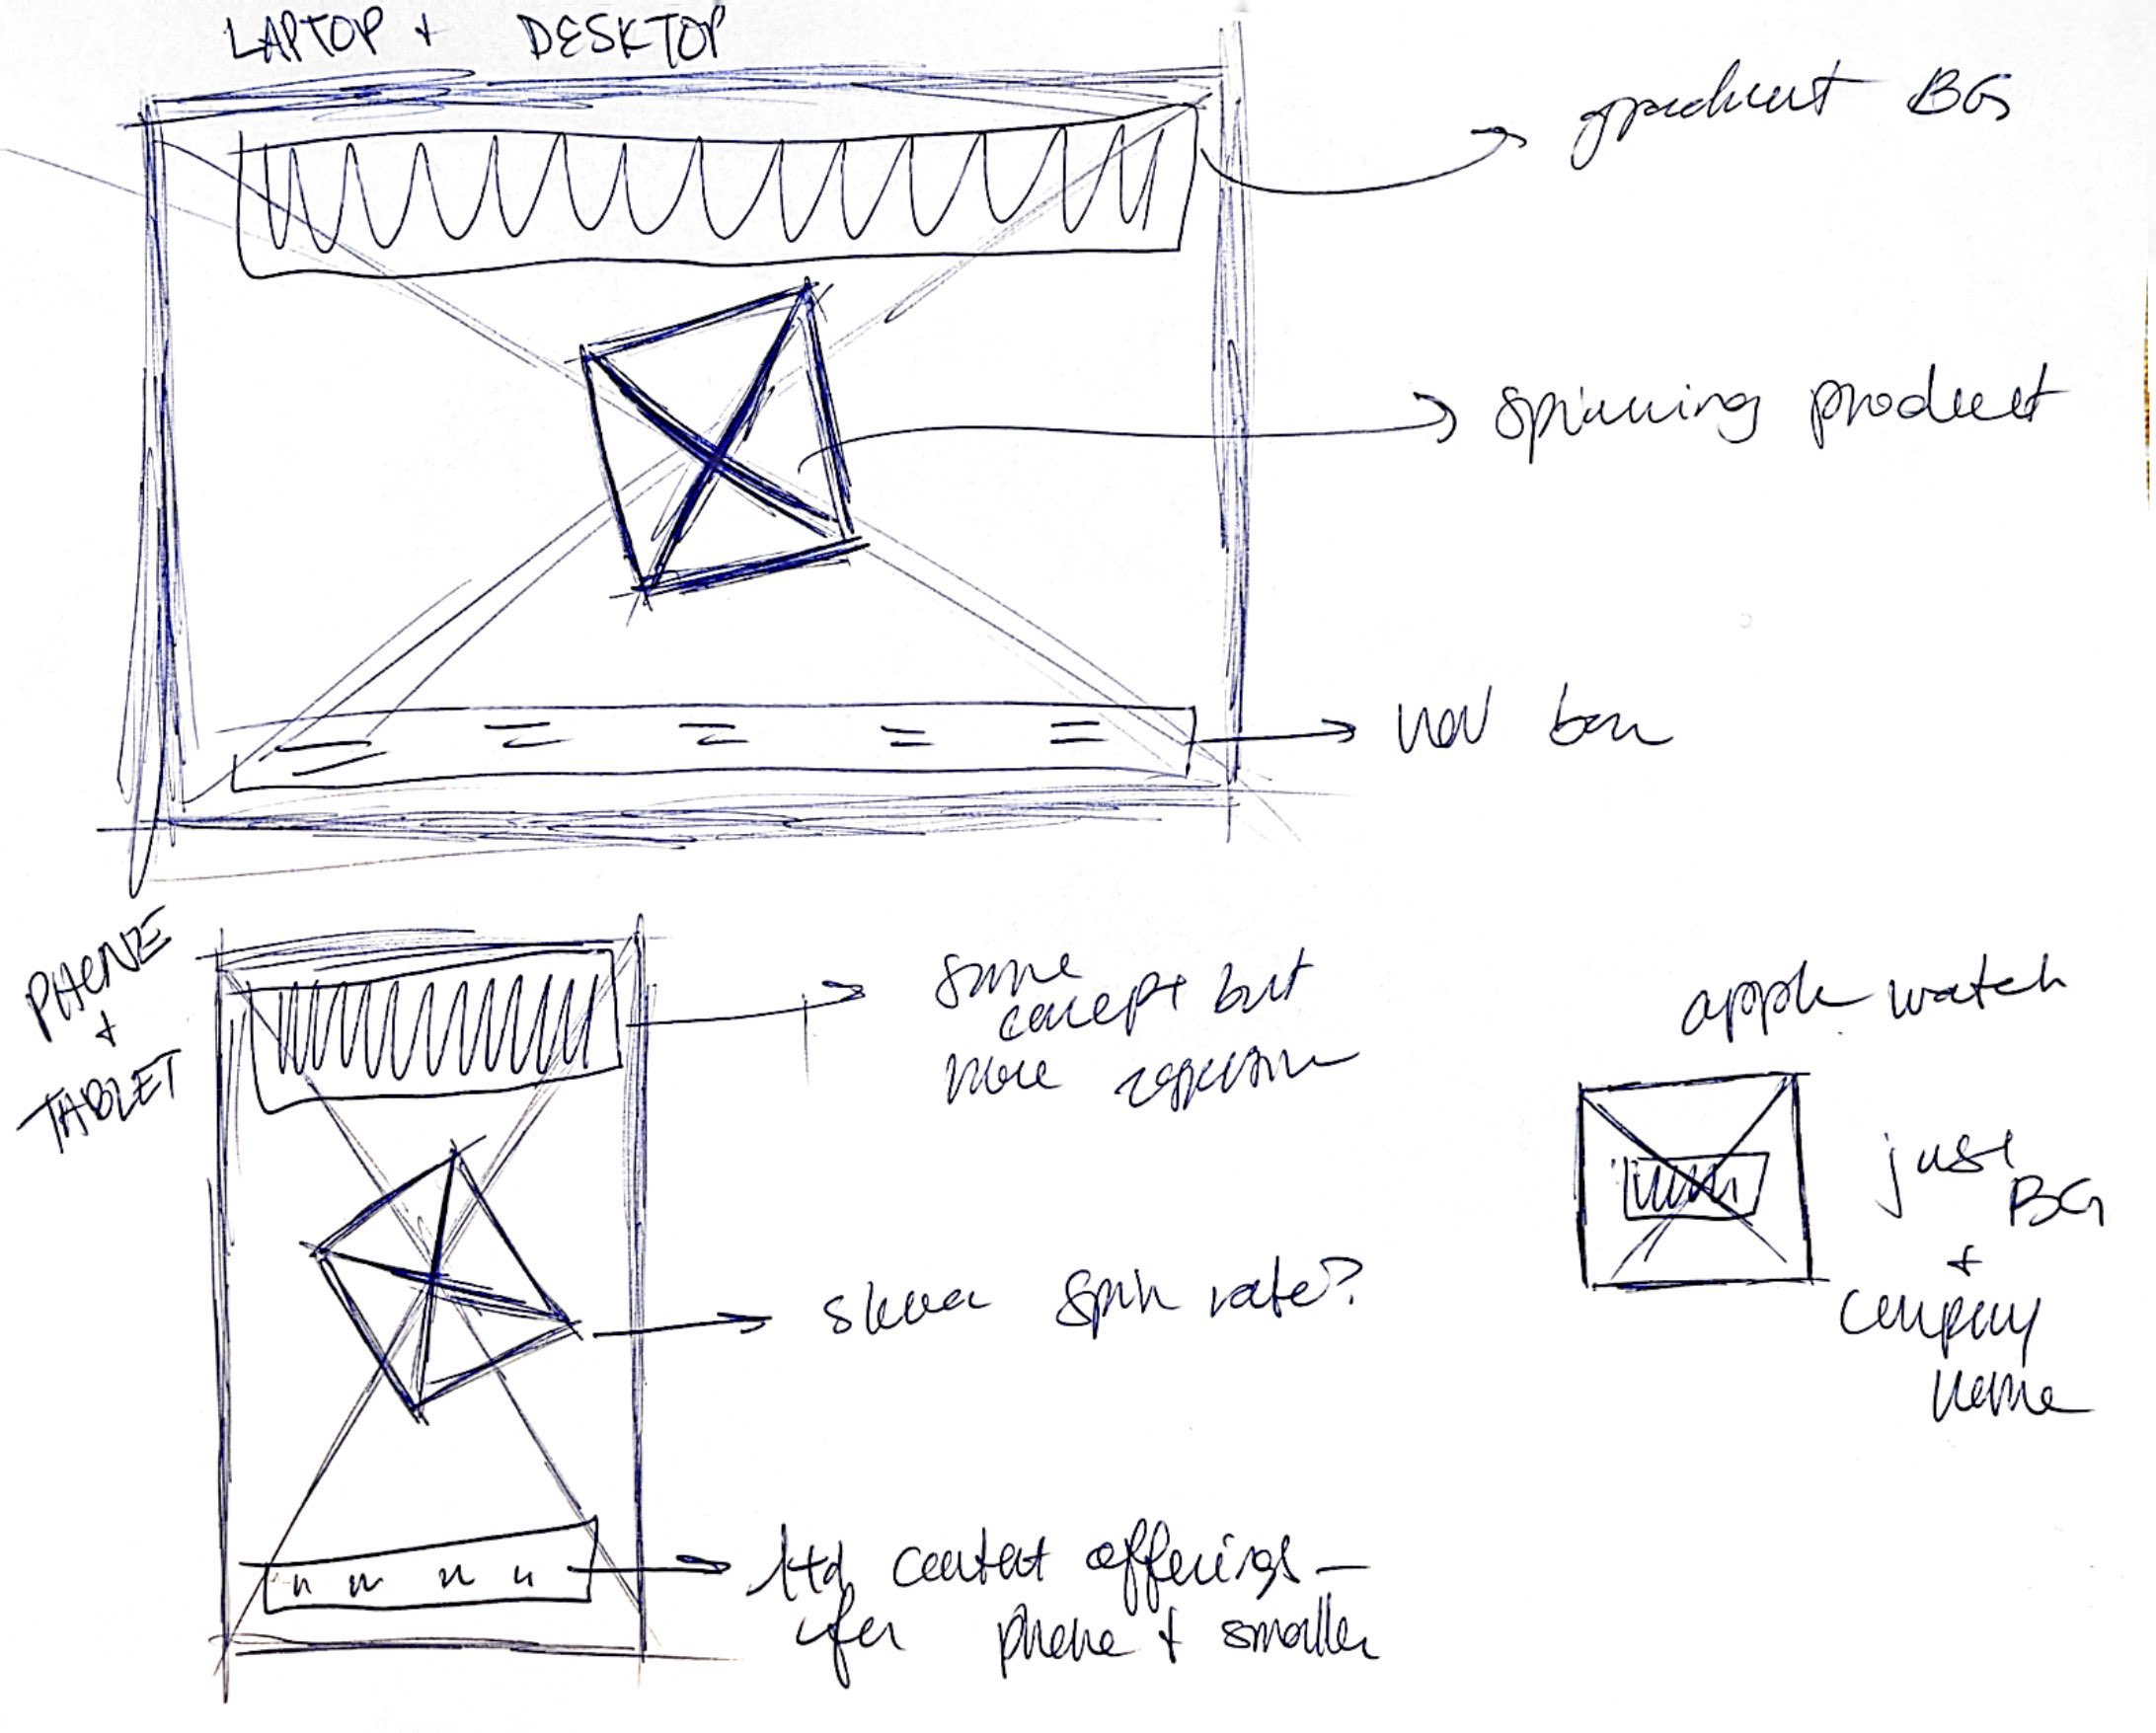 LAPTOP + DESKTOP
gradient BG
spinning product
nav bar
PHONE
+
TABLET
same
concept but
more
slower spin rate?
ltd content offerings —
for phone + smaller
apple watch
just
BG
+
company
name